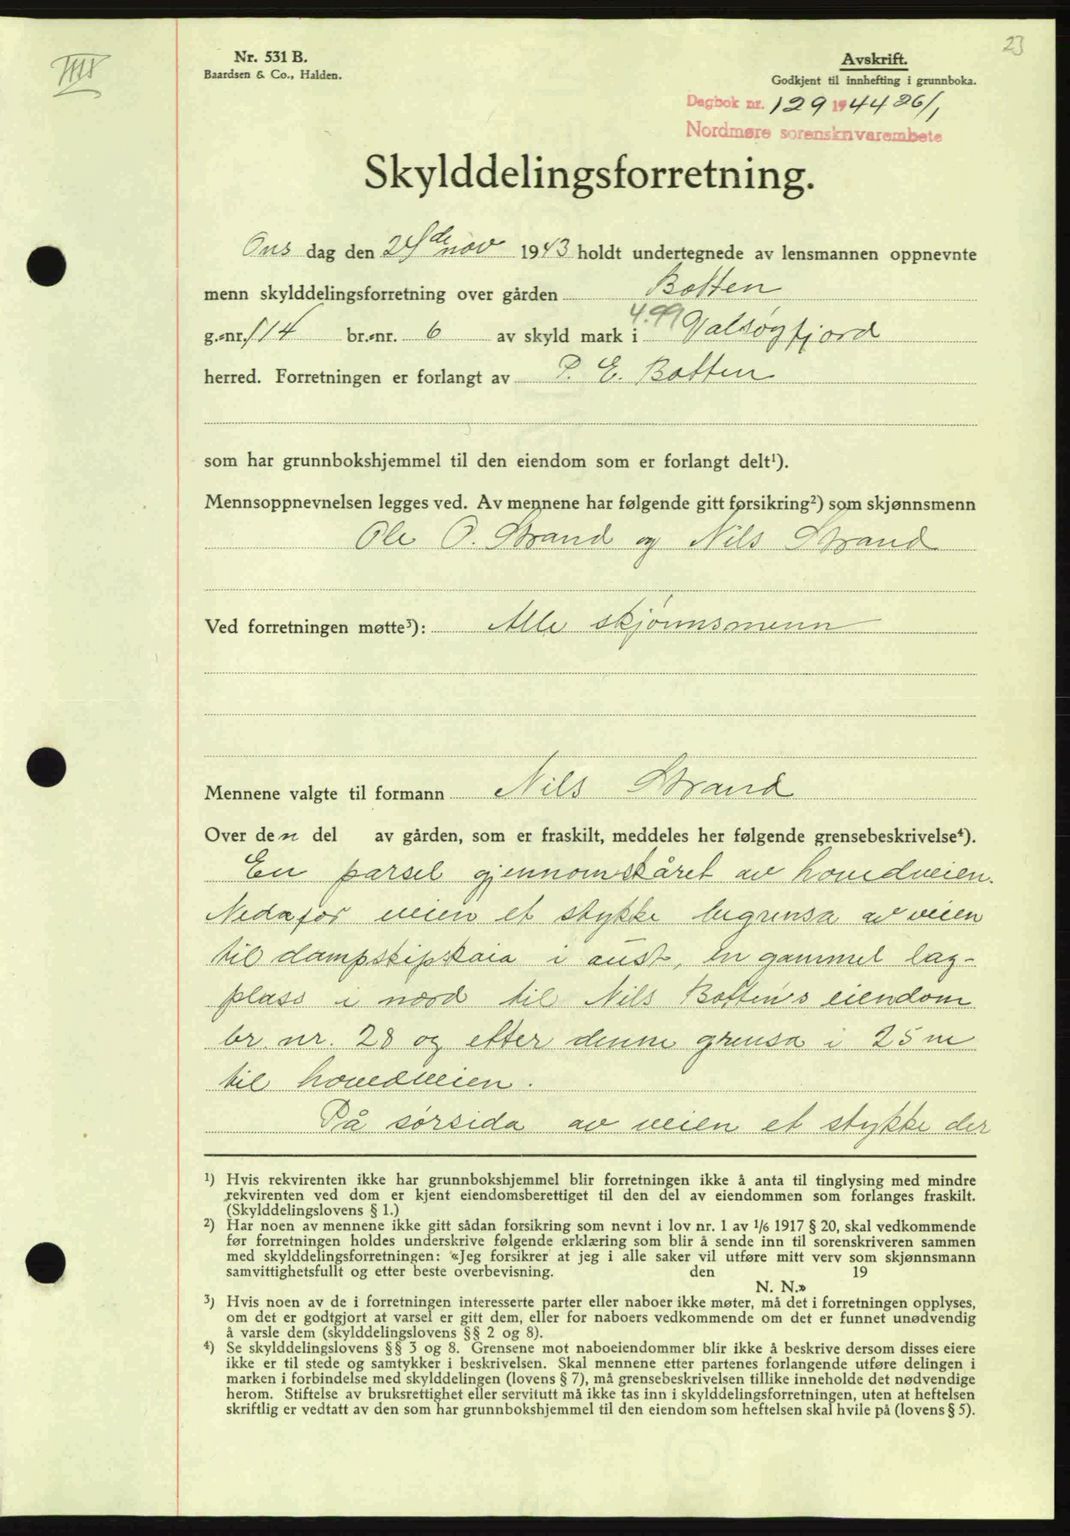 23
Nr. 531 B.
Baardsen & Co., Halden.
Avskrift.
Godkjent til innhefting i grunnboka.
Dagbok nr. 129 1944 26/1
Nordmøre sorenskrivarembete
Skylddelingsforretning.
Ons dag den 24de nov 1943 holdt undertegnede av lensmannen oppnevnte
menn skylddelingsforretning over gården Botten
g.-nr. 114 br.-nr. 6 av skyld mark 4.99 i Valsøyfjord
herred. Forretningen er forlangt av P. E. Botten
som har grunnbokshjemmel til den eiendom som er forlangt delt¹).
Mennsoppnevnelsen legges ved. Av mennene har følgende gitt forsikring²) som skjønnsmenn
Ole O. Strand og Nils Strand
Ved forretningen møtte³): Alle skjønnsmenn
Mennene valgte til formann Nils Strand
Over den del av gården, som er fraskilt, meddeles her følgende grensebeskrivelse⁴).
En parsel gjennomskåret av hovedveien.
Nedafor veien et stykke begrensa av veien
til dampskipskaia i aust, en gammel lag-
plass i nord til Nils Botten's eiendom
br. nr. 28 og etter denne grensa i 25 m
til hovedveien.
På sørsida av veien et stykke der
¹) Hvis rekvirenten ikke har grunnbokshjemmel blir forretningen ikke å anta til tinglysing med mindre
rekvirenten ved dom er kjent eiendomsberettiget til den del av eiendommen som forlanges fraskilt.
(Skylddelingslovens § 1.)
²) Har noen av mennene ikke gitt sådan forsikring som nevnt i lov nr. 1 av 1/6 1917 § 20, skal vedkommende
før forretningen holdes underskrive følgende erklæring som blir å sende inn til sorenskriveren sammen
med skylddelingsforretningen: «Jeg forsikrer at jeg i alle saker vil utføre mitt verv som skjønnsmann
samvittighetsfullt og etter beste overbevisning. den 19
N. N.»
³) Hvis noen av de i forretningen interesserte parter eller naboer ikke møter, må det i forretningen opplyses,
om det er godtgjort at varsel er gitt dem, eller for naboers vedkommende om det er funnet unødvendig
å varsle dem (skylddelingslovens §§ 2 og 8).
⁴) Se skylddelingslovens §§ 3 og 8. Grensene mot naboeiendommer blir ikke å beskrive dersom disses eiere
ikke er til stede og samtykker i beskrivelsen. Skal mennene etter partenes forlangende utføre delingen i
marken i forbindelse med skylddelingen (lovens § 7), må grensebeskrivelsen tillike inneholde det nødvendige
herom. Stiftelse av bruksrettighet eller servitutt må ikke tas inn i skylddelingsforretningen, uten at heftelsen
skriftlig er vedtatt av den som har grunnbokshjemmel til den eiendom som heftelsen skal hvile på (lovens § 5).